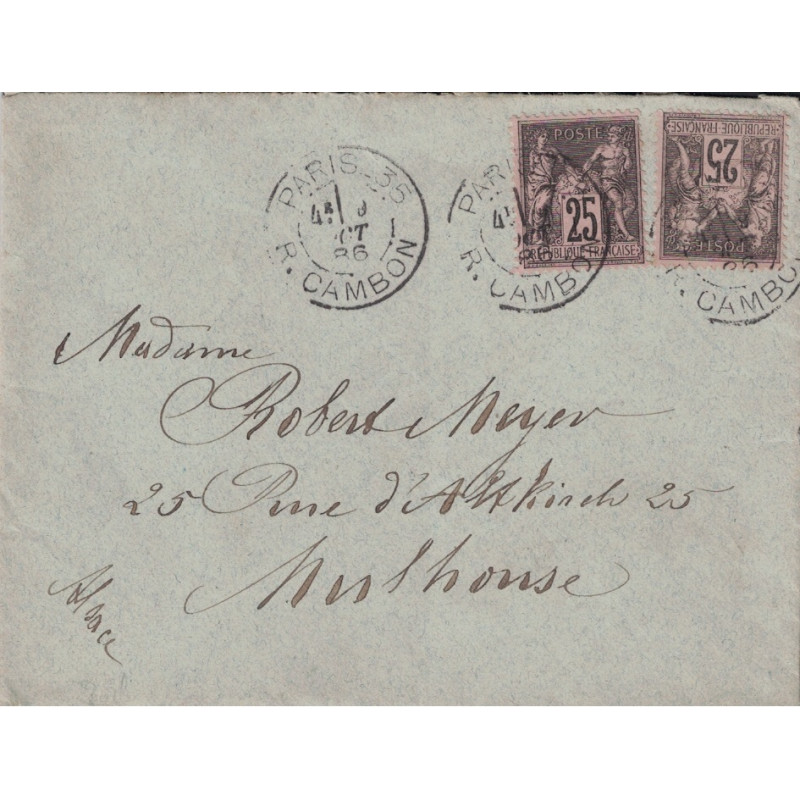 POSTE
25
REPUBLIQUE FRANÇAISE
POSTE
25
REPUBLIQUE FRANÇAISE
PARIS 35
4E 9
OCT
86
R. CAMBON
PARIS
4E
OCT
86
R. CAMBON
86
R. CAMBON
Madame
Robert Meyer
25 Rue d'Altkirch 25
Mulhouse
Alsace